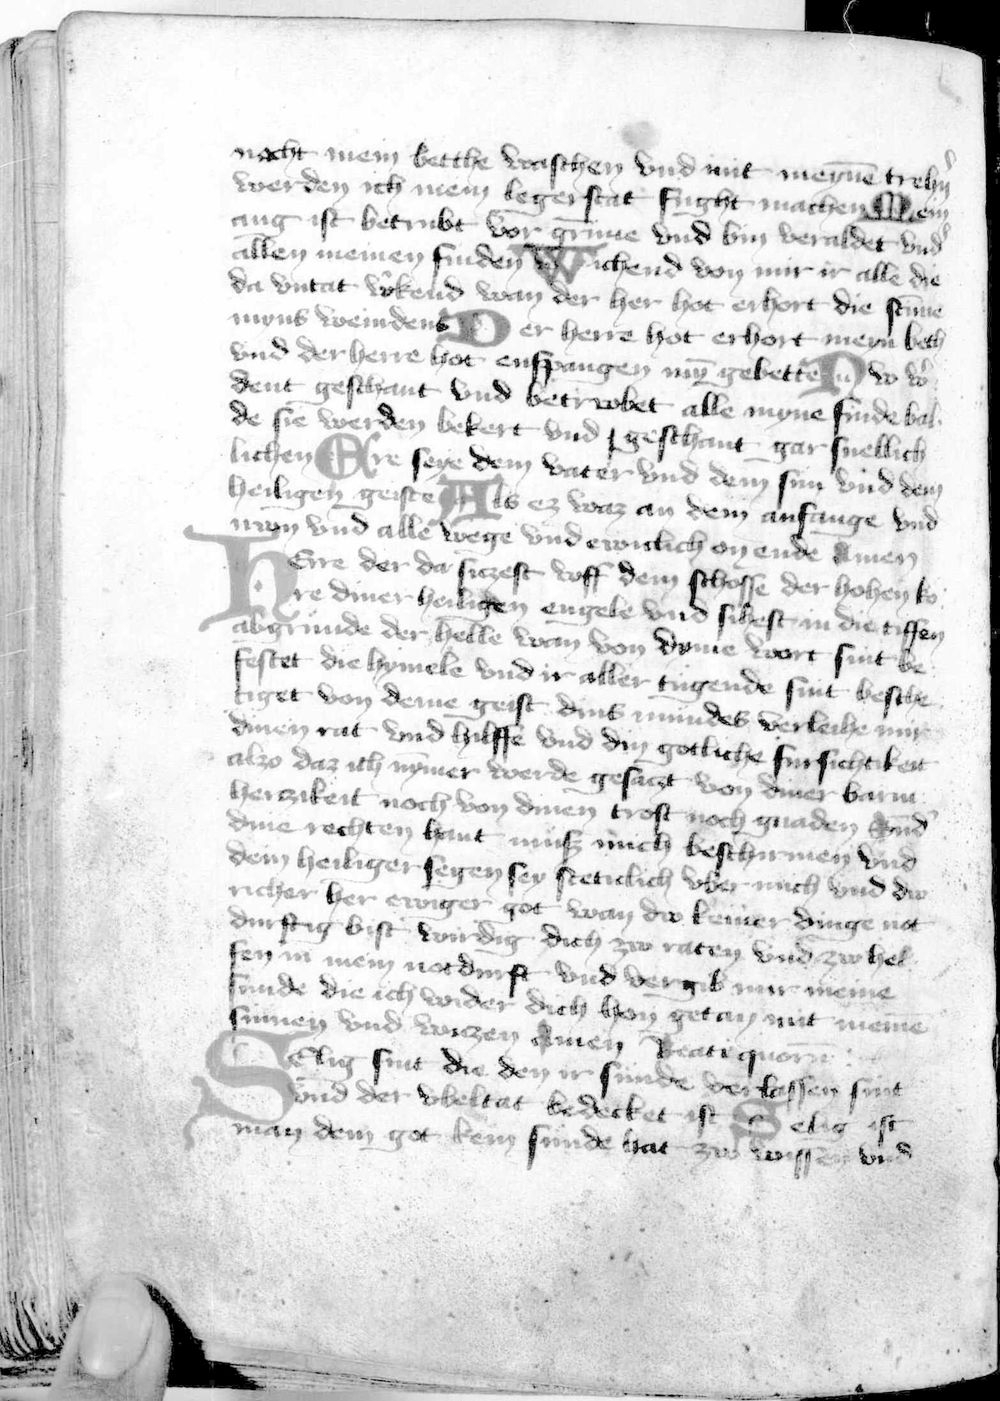 nacht mein betthe waschen vnd mit meynē trehñ
werden ich mein legerstat fught machen Mein
aug ist betrubt vor grime vnd bin veraldet vnd̾
allen meinen finden Wichend von mir ir alle die
da vntat w̾kend wan der her hot erhort die stīme
myns weindens Der herre hot erhort meyn beth
vnd der herre hot enspangen myn̄ gebette Nw w̾
dent geschant vnd betrwbet alle myne finde bal
de sie werden bekert vnd geschant gar snellich
lichen Ere seye dem vater vnd dem sun vnd dem
heiligen geiste Als ez waz an dem anfange vnd
nwn vnd alle wege vnd ewiclich on ende Amen
HErre der da siczest vff dem schosse der hohen ko
re diner heiligen engele vnd sihest in die tiffen
abgrunde der helle wan von dyme wort sint be
festet die hymele vnd ir aller tugende sint beste
tiget von deme geist dins mundes verleihe mir
dinen rat vnd hilffe vnd din gotliche fursichtikeit
also daz ich nymer werde gesaczt von diner barm
herczikeit noch von dinen trost noch gnaden Vnd̾
dine rechten hant musz mich beschirmen vnd
dem heiliger segen sey steticlich vber mich vnd dw
richer her ewiger got wan dw keiner dinge not
durftig bist wirdig dich zw raten vnd zw hel
fen in mein notdurft vnd vergib mir meine
sunde die ich wider dich hon getan mit meine
sinnen vnd wiczen Amen Beati quorū
SElig sint die den ir sunde verlassen sint
vnd der vbeltat bedecket ist Selig ist
man dem got kein sunde hat zw wissen vnd